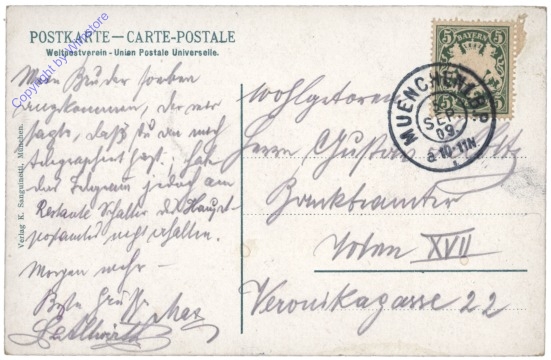 POSTKARTE — CARTE-POSTALE
Weltpostverein - Union Postale Universelle.
Copyright by Winstore
Verlag K. Sanguinetti, München.
Mein Bruder soeben
angekommen, der mir
sagte, daß du an mich
telegraphiert hast; habe
das Telegram jedoch am
Restante Schalter des Haupt-
postamtes nicht erhalten.
Morgen mehr —
Beste Grüße Max
5 5
BAYERN
5 5
MUENCHEN 1 B.P.
SEP.
09
8 10-11N
Wohlgeboren
Herrn Gustav
Bankbeamter
Wien XVII
Veronikagasse 22